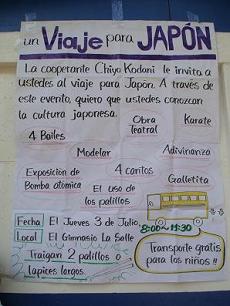 un Viaje para JAPÓN
La cooperante Chiyo Kodani le invita a
ustedes al viaje para Japón. A través de
este evento, quiero que ustedes conozcan
la cultura japonesa.
Obra Teatral
Karate
4 Bailes
Modelar
Adivinanza
Exposición de
Bomba atómica
4 cantos
El uso de
los palillos
Galletita
Fecha El Jueves 3 de Julio,
8:00~11:30
Local El Gimnasio La Salle
Traigan 2 palillos o
lapices largos.
Transporte gratis
para los niños !!